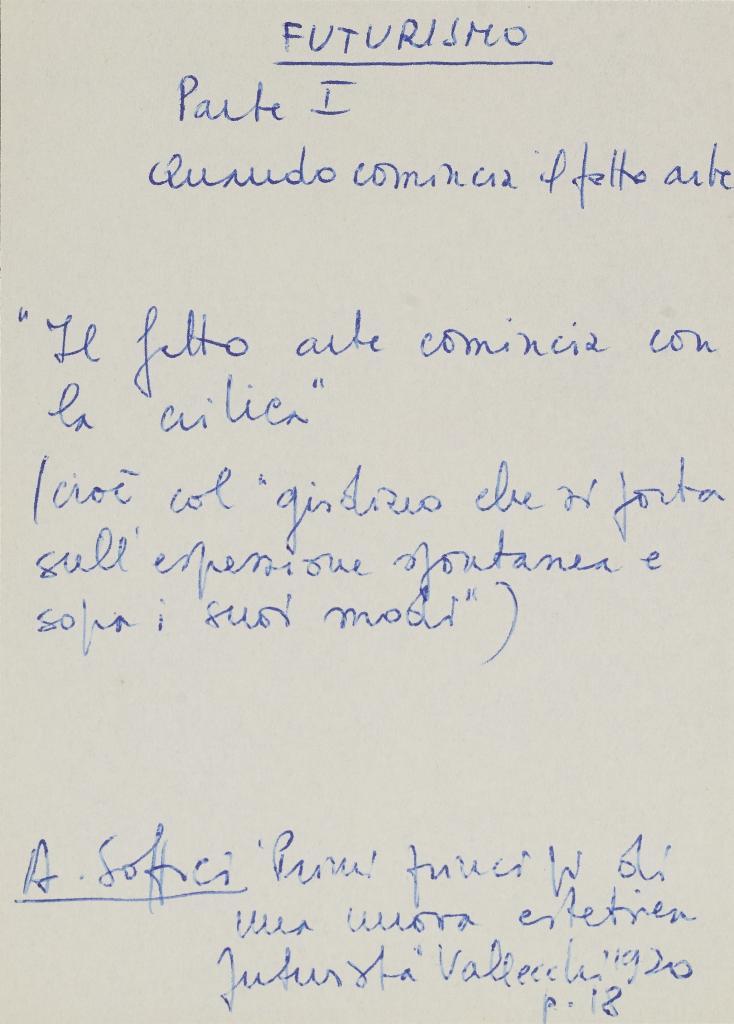 FUTURISMO
Parte I
Quando comincia il fatto arte
"Il fatto arte comincia con
la critica"
(cioè col "giudizio che si porta
sull'espressione spontanea e
sopra i suoi modi")
A. Soffici "Primi principi di
una nuova estetica
futurista" Vallecchi 1920
p. 18